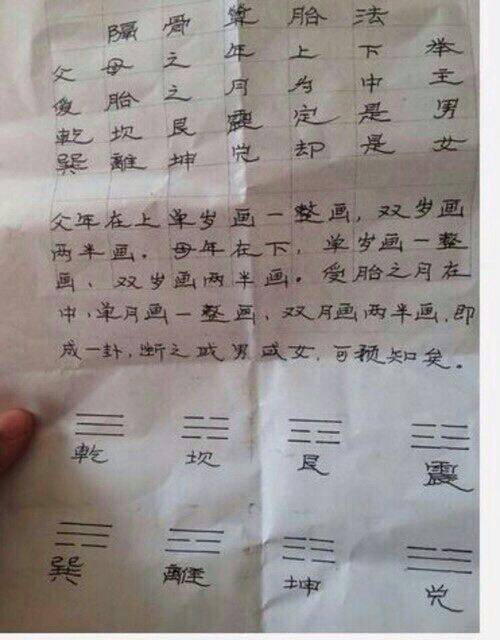 隔骨算胎法
父母之年上下举
受胎之月为中主
乾坎艮震定是男
巽離坤兑却是女
父年在上单岁画一整画，双岁画
两半画。母年在下，单岁画一整
画、双岁画两半画。受胎之月在
中，单月画一整画、双月画两半画，即
成一卦，断之或男或女，可预知矣。
乾 坎 艮 震
巽 離 坤 兑